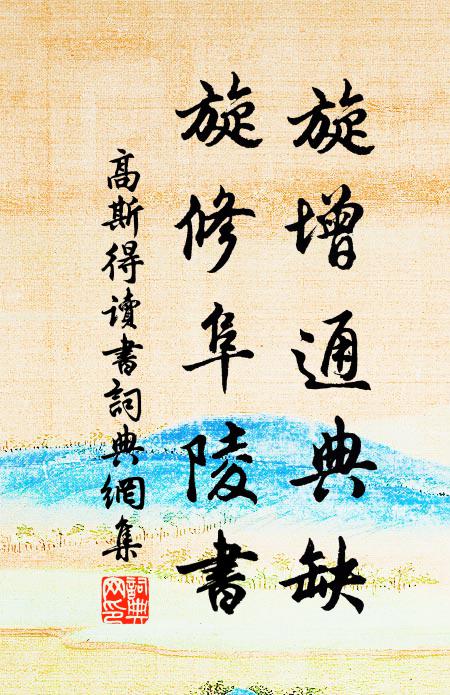 旋增通典缺
旋修阜陵書
高斯得讀書詞典網集
詞典網印